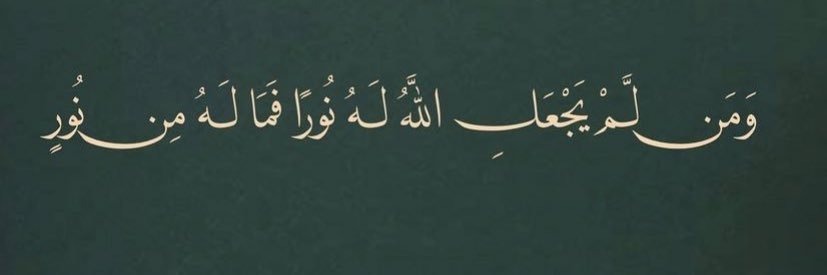 وَمَن لَّمْ يَجْعَلِ اللَّهُ لَهُ نُورًا فَمَا لَهُ مِن نُورٍ